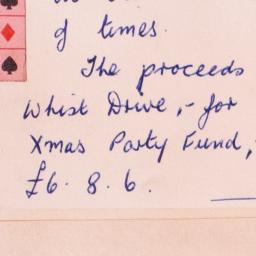 of times.
The proceeds
Whist Drive,- for
Xmas Party Fund,
£6. 8. 6.